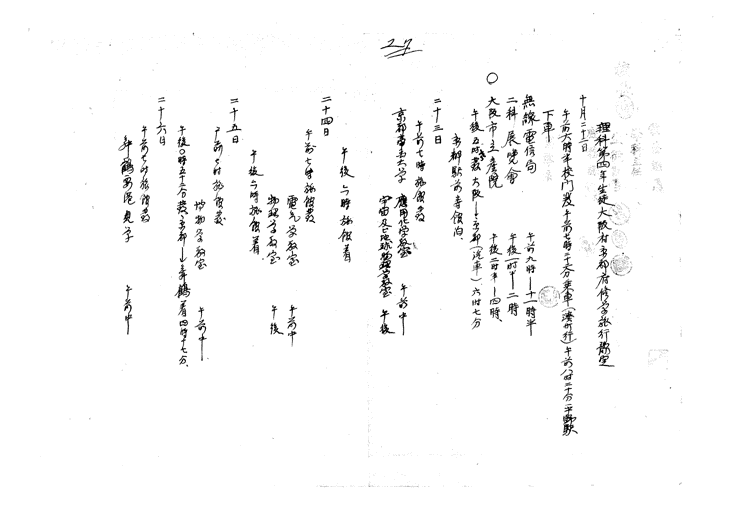 27
理科第四年生徒大阪府京都府修学旅行豫定
十月二十二日
午前六時半校門発午前七時二十六分乗車(湊町行)午前八時二十分平野駅
下車
無線電信局 午前九時―十一時半
二科展覧會 午後一時半―二時
○大阪市立産院 午後二時半―四時、
午後五時発大阪―京都(汽車)六時七分
京都駅前 宿泊
二十三日
午前七時旅館発
京都帝大 應用化学教室 午前中
宇宙及地球物理学教室 午後
午後六時旅館着
二十四日
午前七時旅館発
電気学教室 午前中
物理学教室 午後
午後六時旅館着
二十五日
午前七時旅館発
動物学教室 午前中
午後〇時五十三分発京都―舞鶴着四時十七分、
二十六日
午前七時旅館発
舞鶴要港見学 午前中